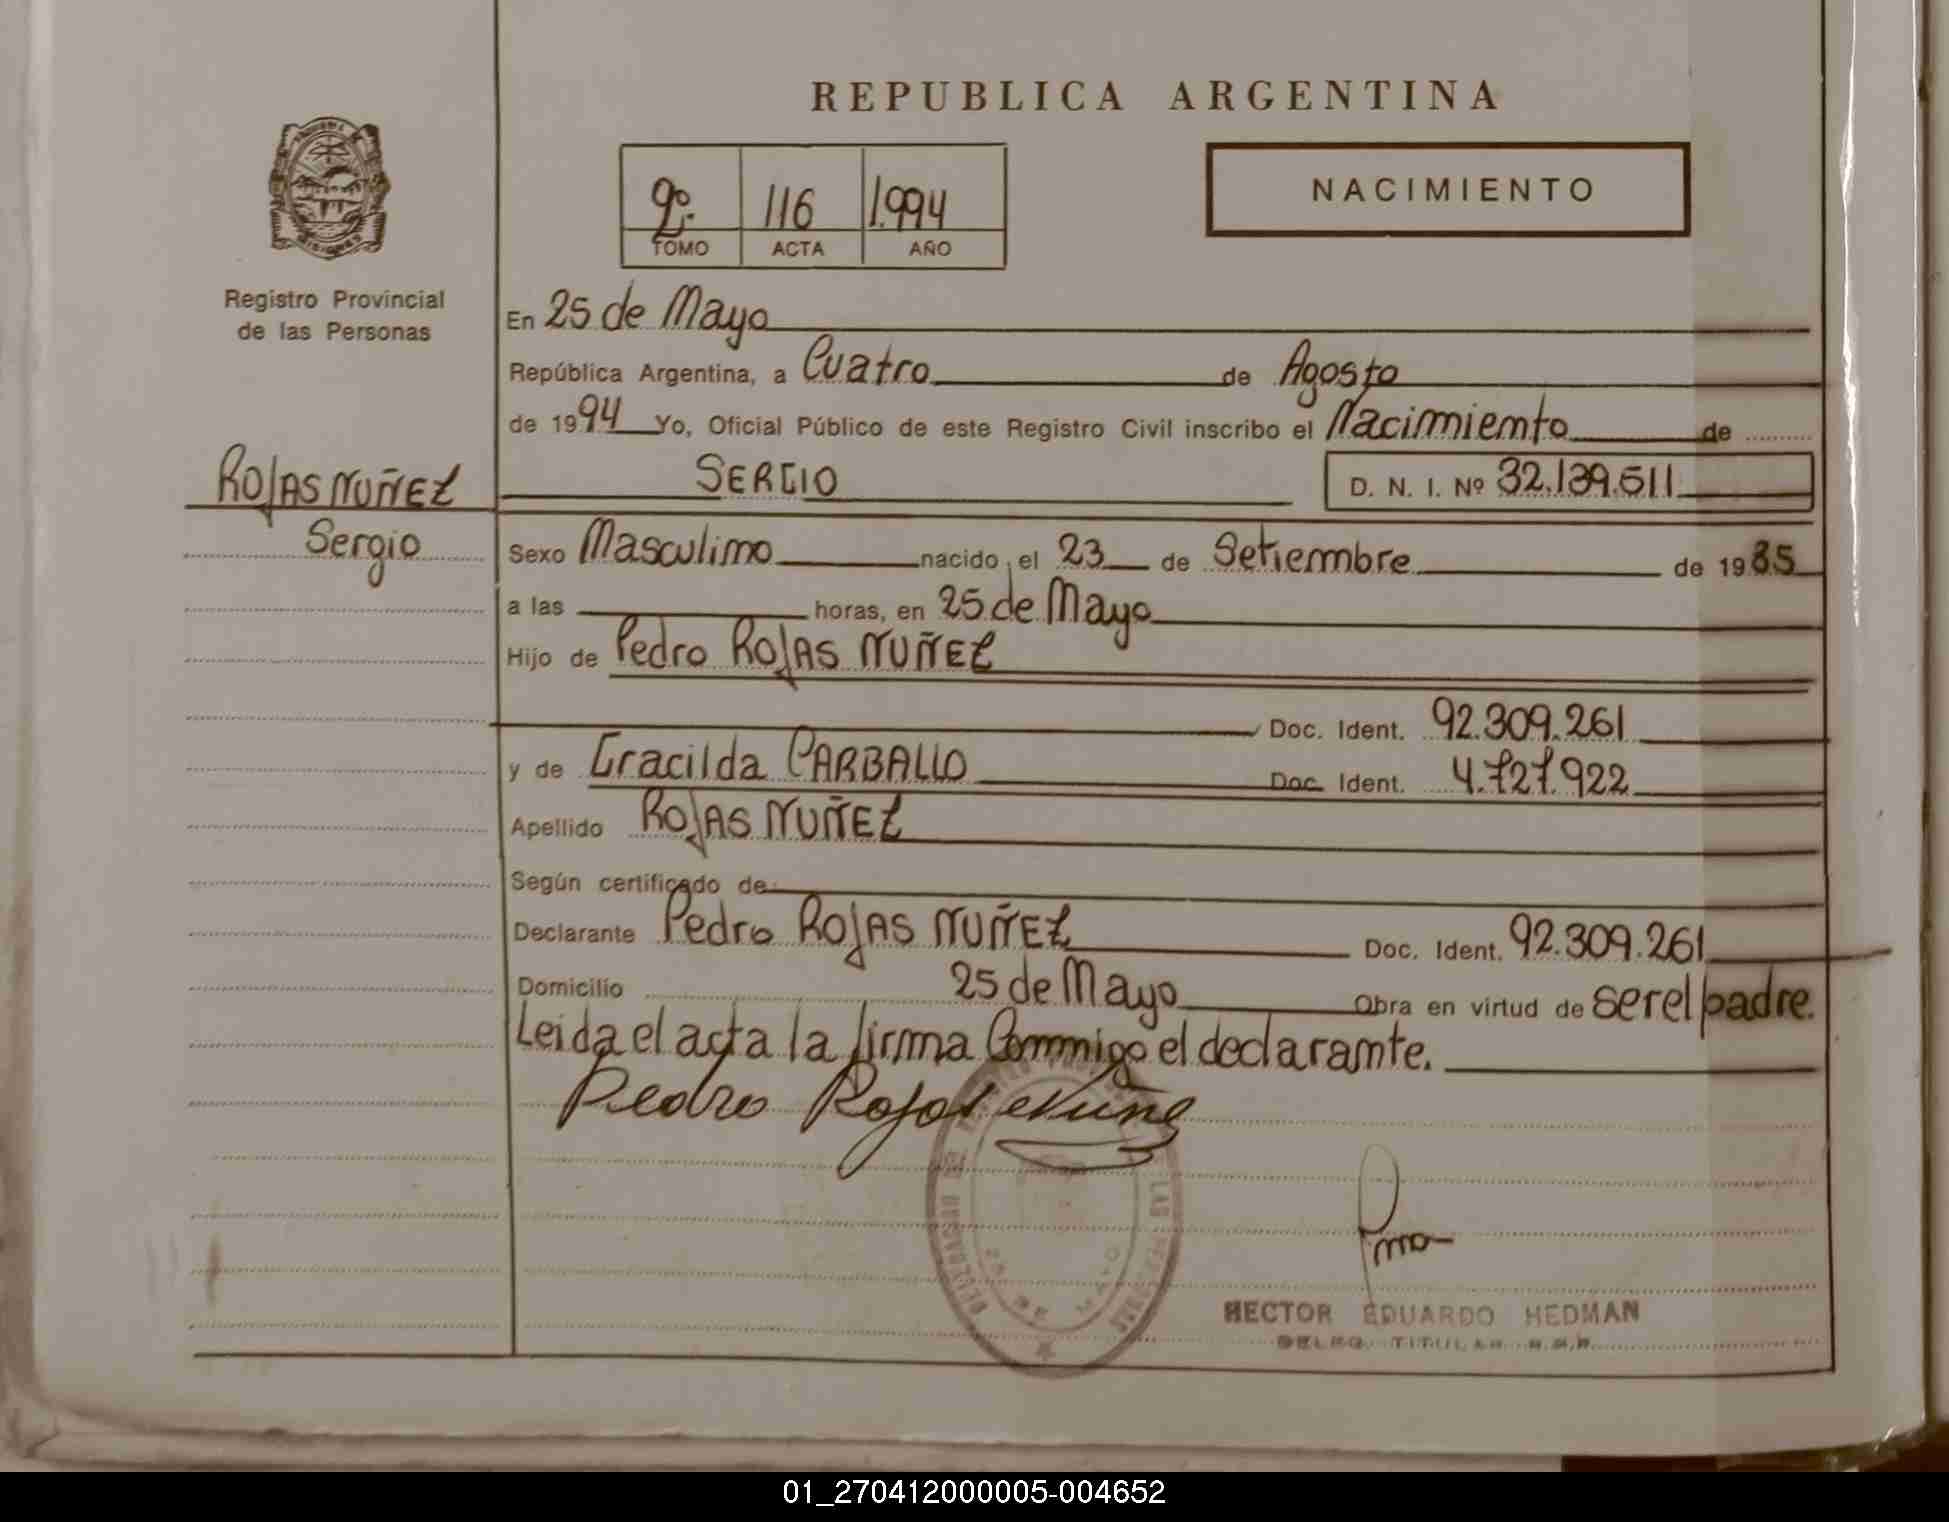 REPUBLICA ARGENTINA
2º. 116 1.994
TOMO ACTA AÑO
NACIMIENTO
MISIONES
Registro Provincial
de las Personas
En 25 de Mayo
República Argentina, a Cuatro de Agosto
de 1994 Yo, Oficial Público de este Registro Civil inscribo el Nacimiento de
ROJAS NUÑEZ
Sergio
SERGIO D. N. I. Nº 32.139.511
Sexo Masculino nacido el 23 de Setiembre de 1985
a las horas, en 25 de Mayo
Hijo de Pedro ROJAS NUÑEZ
Doc. Ident. 92.309.261
y de Gracilda CARBALLO Doc. Ident. 4.727.922
Apellido ROJAS NUÑEZ
Según certificado de
Declarante Pedro ROJAS NUÑEZ Doc. Ident. 92.309.261
Domicilio 25 de Mayo Obra en virtud de ser el padre.
Leida el acta la firma Conmigo el declarante.
Pedro Rojas Nuñe
LAS PERSONAS
25 DE MAYO
HECTOR EDUARDO HEDMAN
DELEG. TITULAR R.P.P.
01_270412000005-004652